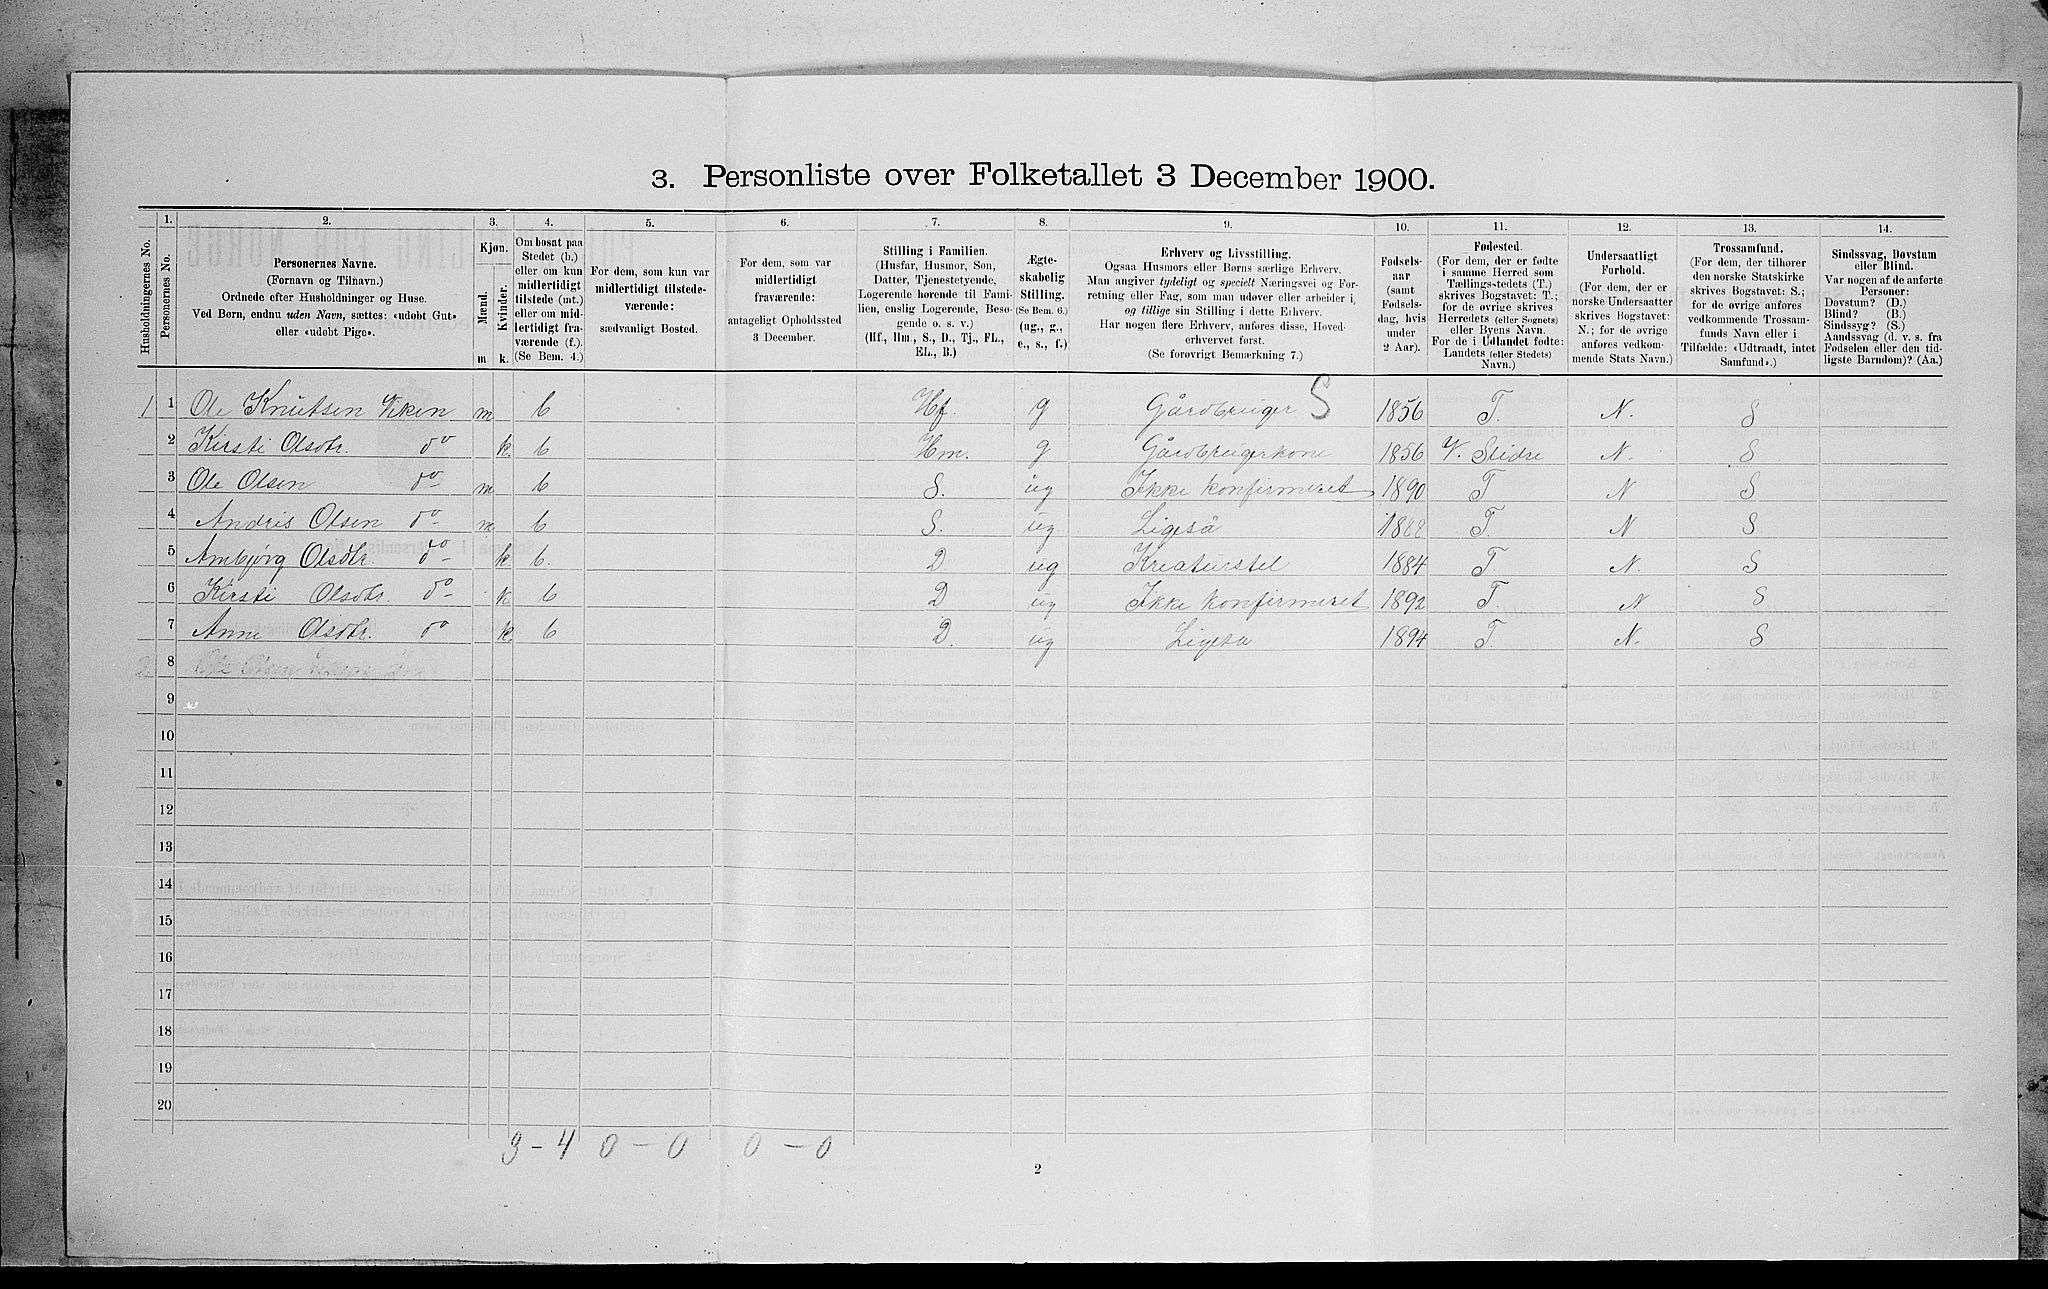 3. Personliste over Folketallet 3 December 1900.
1. 2. 3. 4. 5. 6. 7. 8. 9. 10. 11. 12. 13. 14.
Husholdningernes No.
Personernes No.
Personernes Navne.
(Fornavn og Tilnavn.)
Ordnede efter Husholdninger og Huse.
Ved Børn, endnu uden Navn, sættes: «udøbt Gut»
eller «udøbt Pige».
Kjøn.
Mænd.
Kvinder.
m k.
Om bosat paa
Stedet (b.)
eller om kun
midlertidigt
tilstede (mt.)
eller om mid-
lertidigt fra-
værende (f.).
(Se Bem. 4.)
For dem, som kun var
midlertidigt tilstede-
værende:
sædvanligt Bosted.
For dem, som var
midlertidigt
fraværende:
antageligt Opholdssted
3 December.
Stilling i Familien.
(Husfar, Husmor, Søn,
Datter, Tjenestetyende,
Logerende hørende til Fami-
lien, enslig Logerende, Besø-
gende o. s. v.)
(Hf., Hm., S., D., Tj., FL.,
EL., B.)
Ægte-
skabelig
Stilling.
(Se Bem. 6.)
(ug., g.,
e., s., f.)
Erhverv og Livsstilling.
Ogsaa Husmors eller Børns særlige Erhverv.
Man angiver tydeligt og specielt Næringsvei og For-
retning eller Fag, som man udøver eller arbeider i,
og tillige sin Stilling i dette Erhverv.
Har nogen flere Erhverv, anføres disse, Hoved-
erhvervet først.
(Se forøvrigt Bemærkning 7.)
Fødsels-
aar
(samt
Fødsels-
dag, hvis
under
2 Aar).
Fødested.
(For dem, der er fødte
i samme Herred som
Tællings-stedets (T.)
skrives Bogstavet: T.;
for de øvrige skrives
Herredets (eller Sognets)
eller Byens Navn.
For de i Udlandet fødte:
Landets (eller Stedets)
Navn.)
Undersaatligt
Forhold.
(For dem, der er
norske Undersaatter
skrives Bogstavet:
N.; for de øvrige
anføres vedkom-
mende Stats Navn.)
Trossamfund.
(For dem, der tilhører
den norske Statskirke
skrives Bogstavet: S.;
for de øvrige anføres
vedkommende Trossam-
funds Navn eller i
Tilfælde: «Udtraadt, intet
Samfund».)
Sindssvag, Døvstum
eller Blind.
Var nogen af de anførte
Personer:
Døvstum? (D.)
Blind? (B.)
Sindssyg? (S.)
Aandssvag (d. v. s. fra
Fødselen eller den tid-
ligste Barndom)? (Aa.)
1 1 Ole Knutsen Viken m b Hf. g Gårdbruger S 1856 T. N. S
2 Kirsti Olsdtr. do k. b Hm. g Gårdbrugerkone 1856 V. Slidre N. S
3 Ole Olsen do m b S. ug Ikke konfirmeret 1890 T N S
4 Andris Olsen do m b S. ug Ligeså 1888 T. N S
5 Ambjørg Olsdtr. do k. b. D ug Kreaturstel 1884 T. N. S
6 Kirsti Olsdtr. do k b D ug Ikke konfirmeret 1892 T. N S
7 Anne Olsdtr. do k. b D. ug Ligesa 1894 T. N. S
8
9
10
11
12
13
14
15
16
17
18
19
20
3 - 4 0 - 0 0 - 0
2